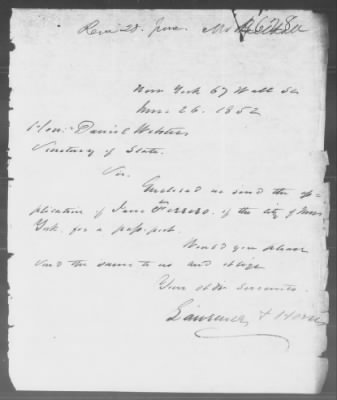 Recd 28 June
New York 67 Wall St
June 26. 1852
Hon: Daniel Webster
Secretary of State.
Sir.
Enclosed we send the ap-
plication of Ferrero. of the city of New
York. for a pass-port.
Would you please
send the same to us and oblige
Your obdt Servants